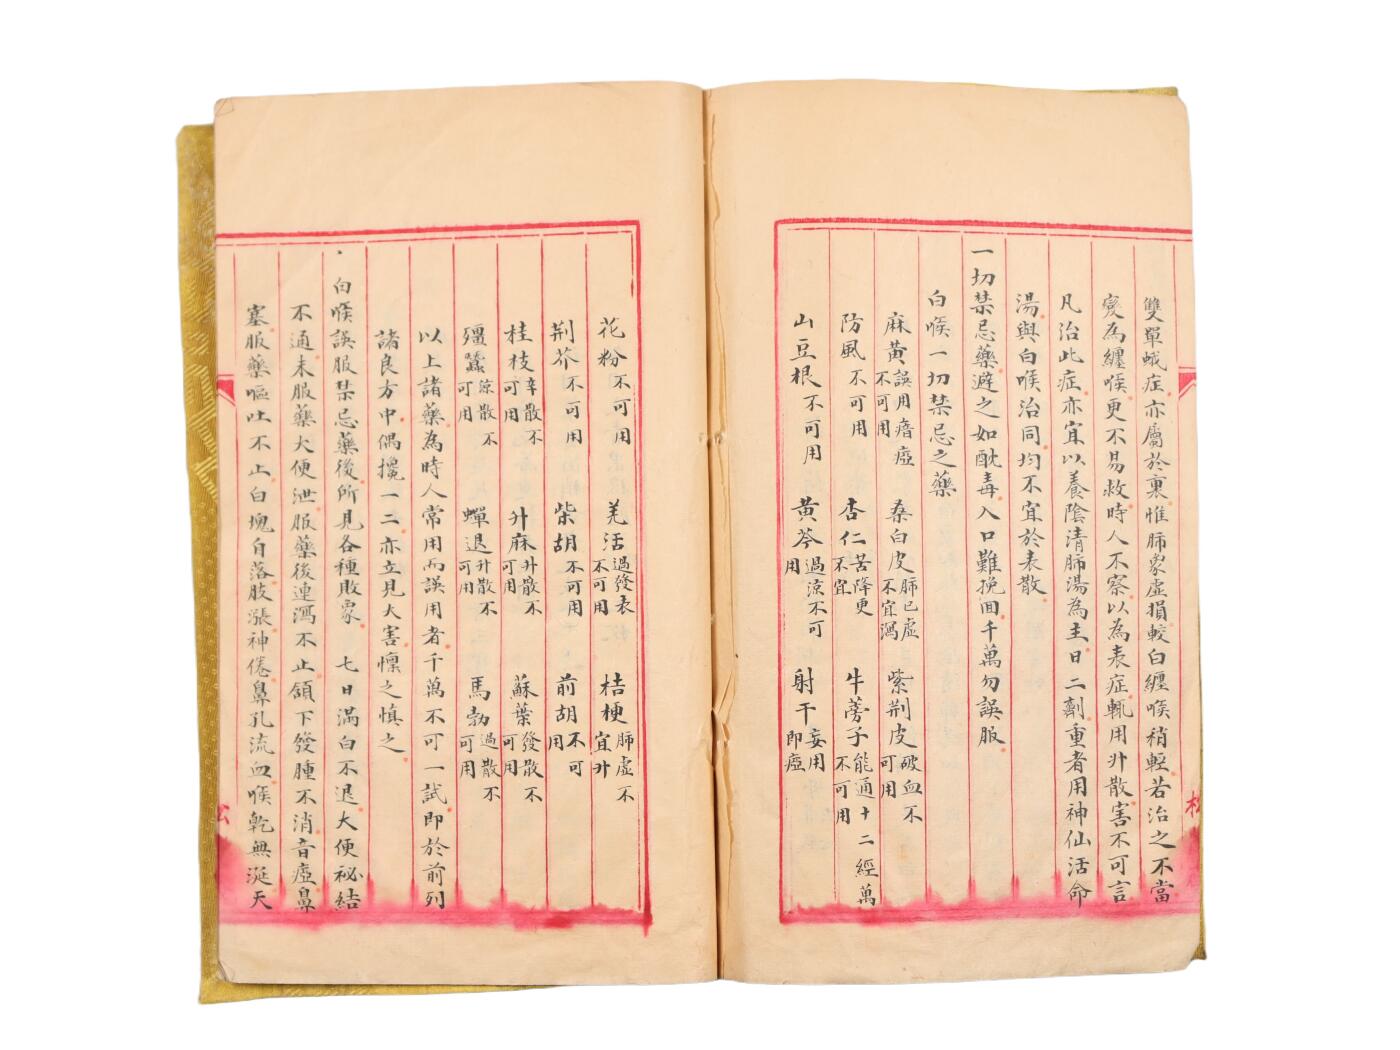 雙單蛾症亦屬於裏惟肺象虛損較白纏喉稍輕若治之不當
變為纏喉更不易救時人不察以為表症輒用升散害不可言
凡治此症亦宜以養陰清肺湯為主日二劑重者用神仙活命
湯與白喉治同均不宜於表散
一切禁忌藥避之如酖毒入口難挽回千萬勿誤服
白喉一切禁忌之藥
麻黃誤用瘖瘂不可用 桑白皮肺已虛不宜瀉 紫荆皮破血不可用
防風不可用 杏仁苦降更不宜 牛蒡子能通十二經萬不可用
山豆根不可用 黃芩過涼不可用 射干妄用即瘂
花粉不可用 羌活過發表不可用 桔梗肺虛不宜升
荆芥不可用 柴胡不可用 前胡不可用
桂枝辛散不可用 升麻升散不可用 蘇葉發散不可用
殭蠶涼散不可用 蟬退升散不可用 馬勃過散不可用
以上諸藥為時人常用而誤用者千萬不可一試即於前列
諸良方中偶攙一二亦立見大害懔之慎之
白喉誤服禁忌藥後所見各種敗象 七日滿白不退大便祕結
不通未服藥大便泄服藥後連瀉不止頷下發腫不消音瘂鼻
塞服藥嘔吐不止白塊自落肢漲神倦鼻孔流血喉乾無涎天